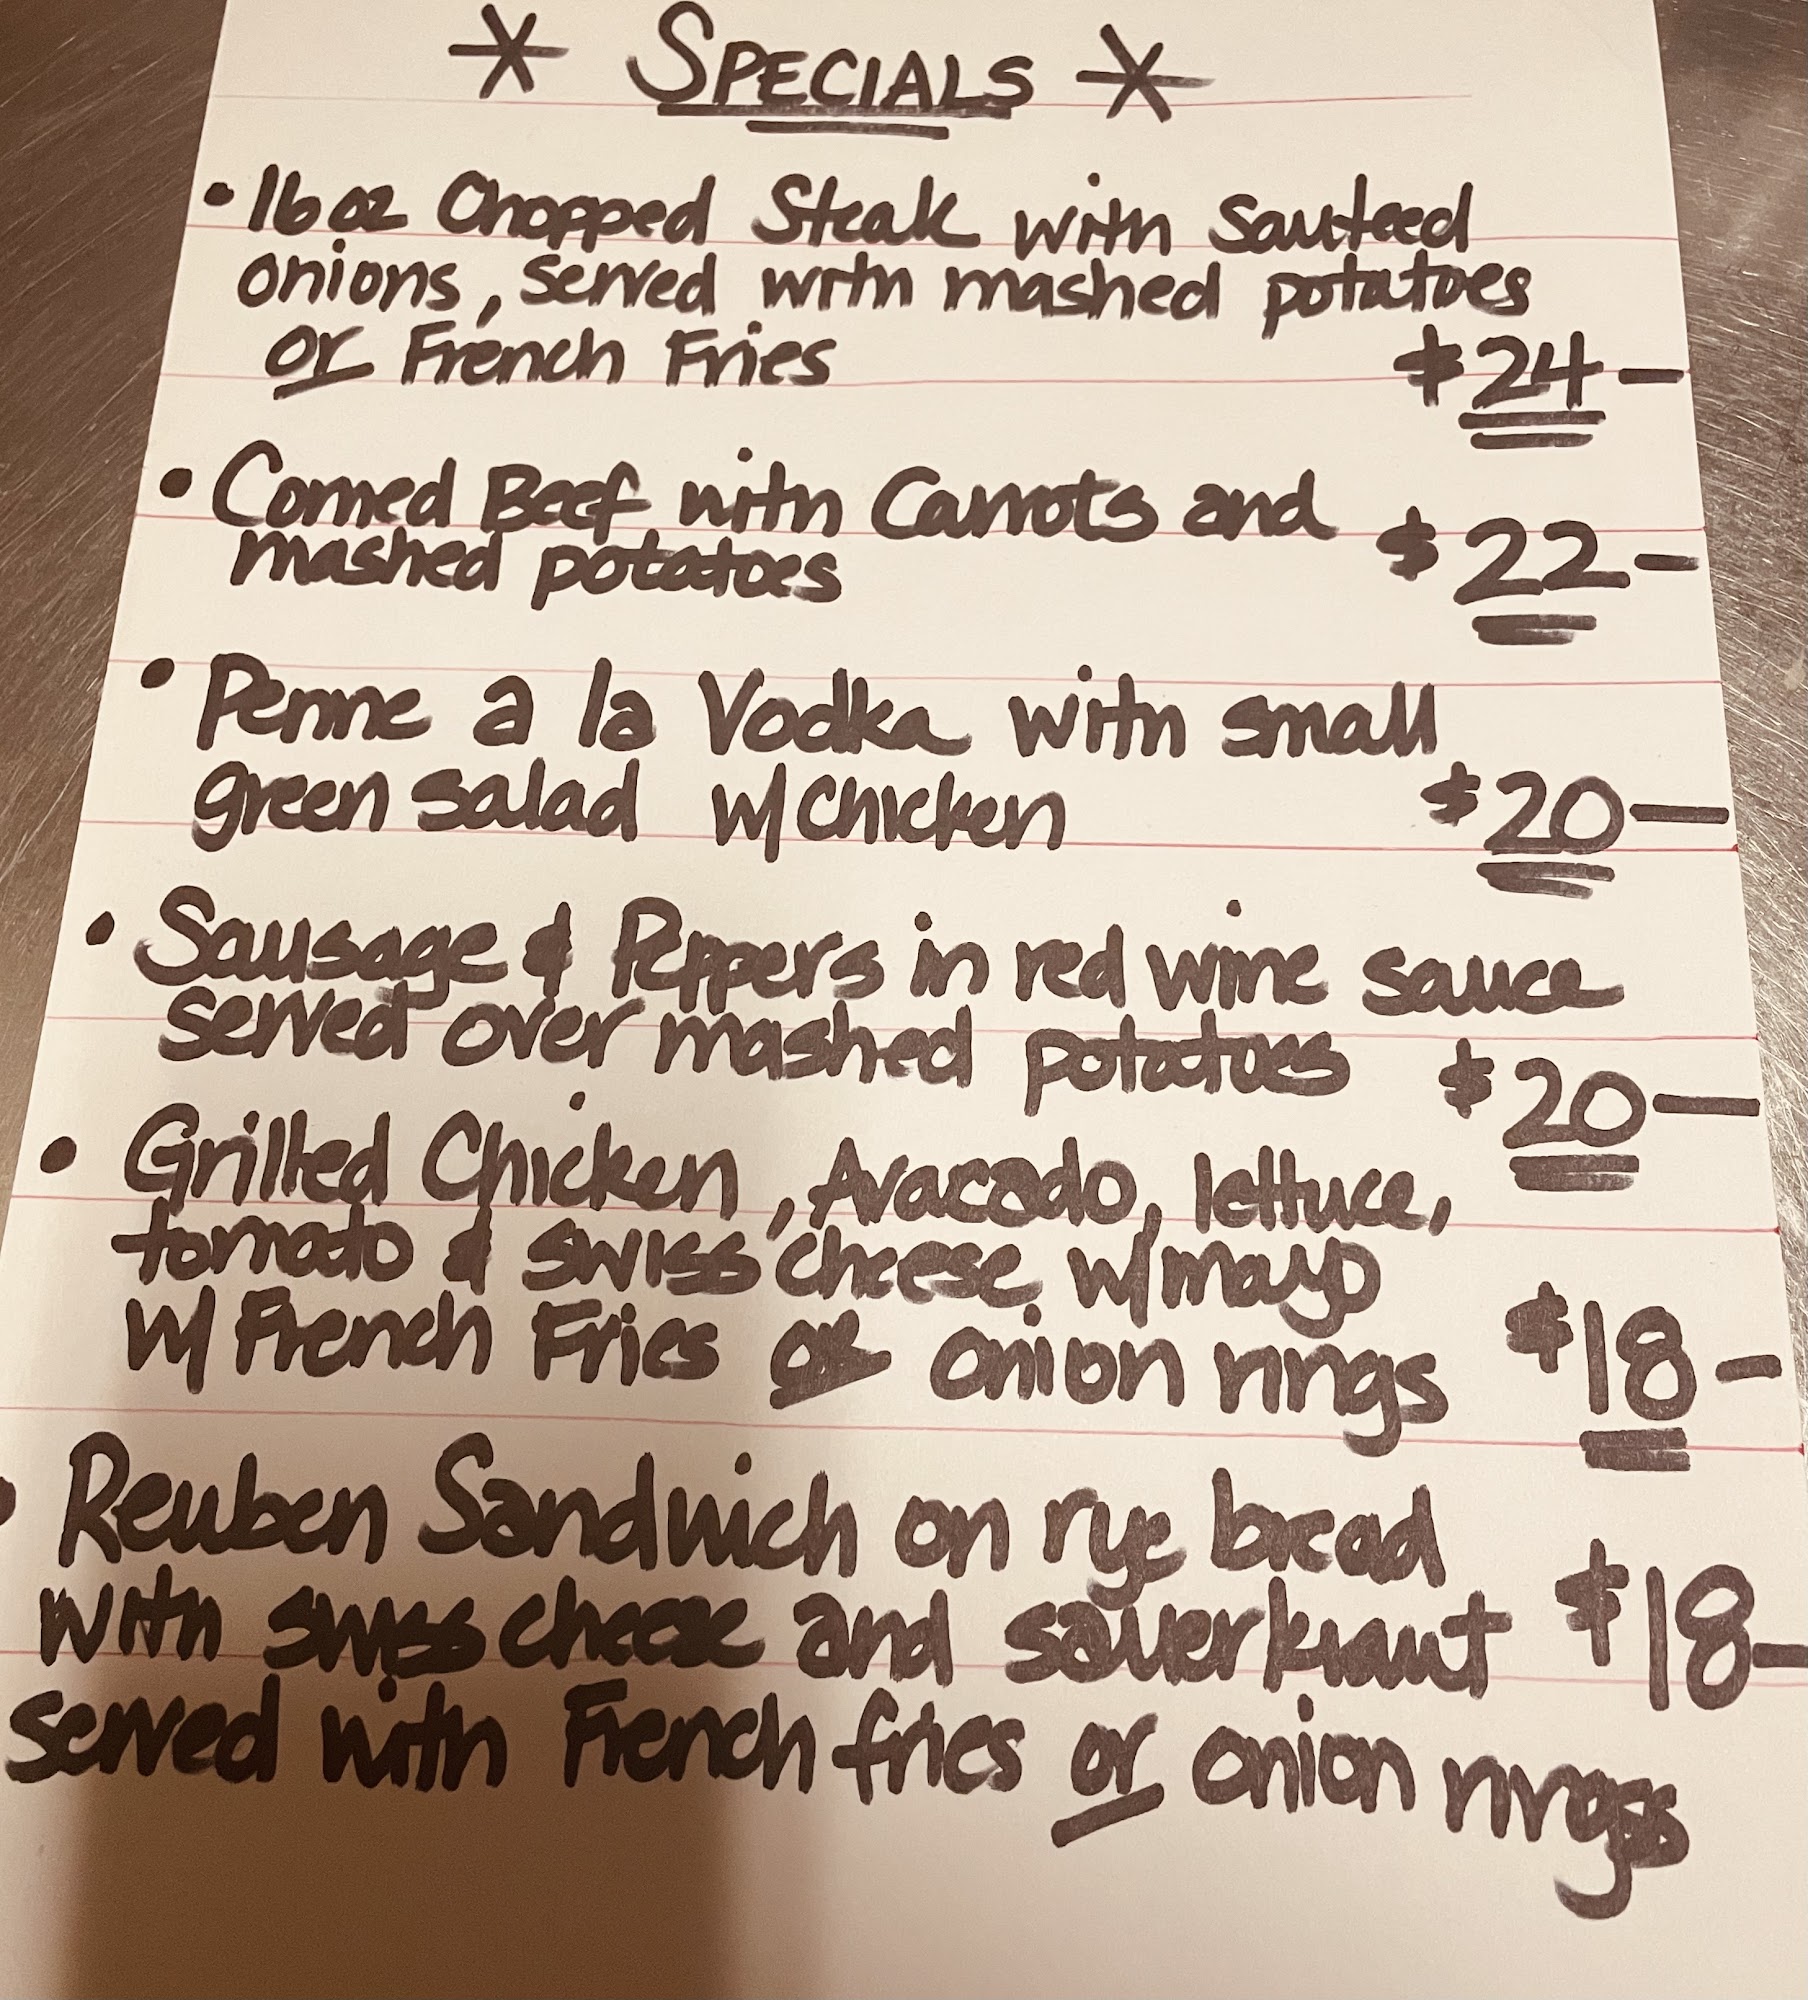 * SPECIALS *
• 16 oz Chopped Steak with Sauteed
onions, served with mashed potatoes
or French Fries $24-
• Corned Beef with Carrots and
mashed potatoes $22-
• Penne a la Vodka with small
green salad w/chicken $20-
• Sausage & Peppers in red wine sauce
served over mashed potatoes $20-
• Grilled Chicken, Avacado, lettuce,
tomato & swiss cheese w/mayo
w/ French Fries or onion rings $18-
• Reuben Sandwich on rye bread
with swiss cheese and sauerkraut $18-
served with French fries or onion rings